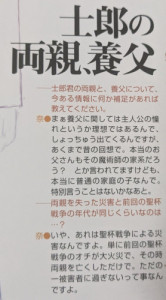 士郎の
両親、養父
――士郎君の両親と、養父について、
今ある情報に何か補足があれば
教えてください。
奈●まぁ養父に関しては主人公の憧
れというか理想ではあるんで、
しょっちゅう出てくるんですが、
あくまで昔の回想で。本当のお
父さんもその魔術師の家系だろ
う? とか言われてますけども、
本当に普通の家庭の子なんで、
特別言うことはないかなあと。
――両親を失った災害と前回の聖杯
戦争の年代が同じくらいなのは
…?
奈●いや、あれは聖杯戦争による災
害なんですよ。単に前回の聖杯
戦争のオチが大火災で、その時
両親を亡くしただけで、ただの
一被害者に過ぎないって事なん
ですよ。